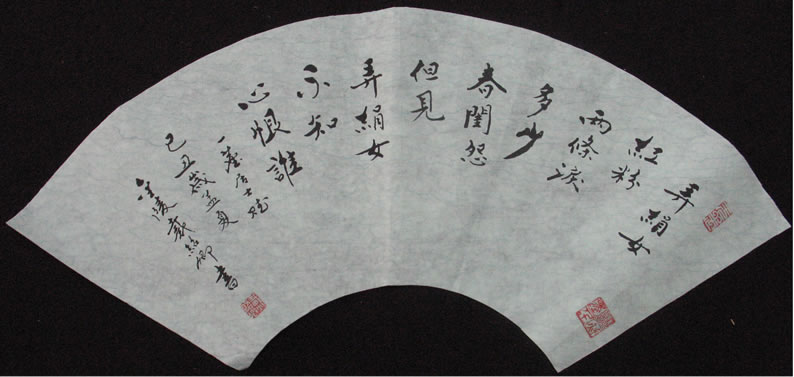 弄絹女
紅粉
兩條淚
多少
春閨怨
但見
弄絹女
不知
心恨誰
一塵居士賦
己丑歲孟夏
金陵戴紹卿書